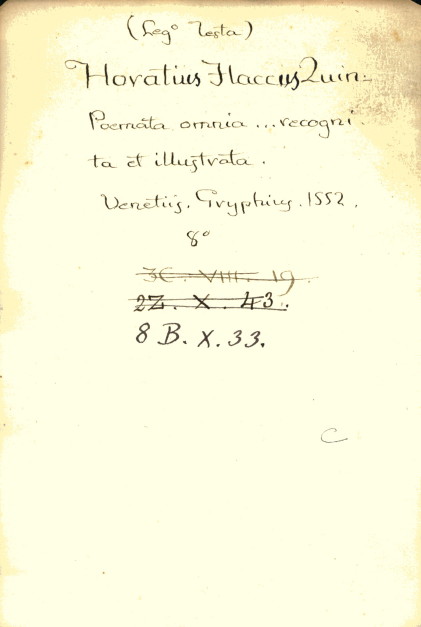 (Leg° Testa)
Horatius Flaccus Quin:
Poemata omnia ... recogni
ta et illustrata.
Venetiis. Gryphius. 1552.
8°
3C. VIII. 19.
2Z. X. 43.
8 B. X. 33.
C